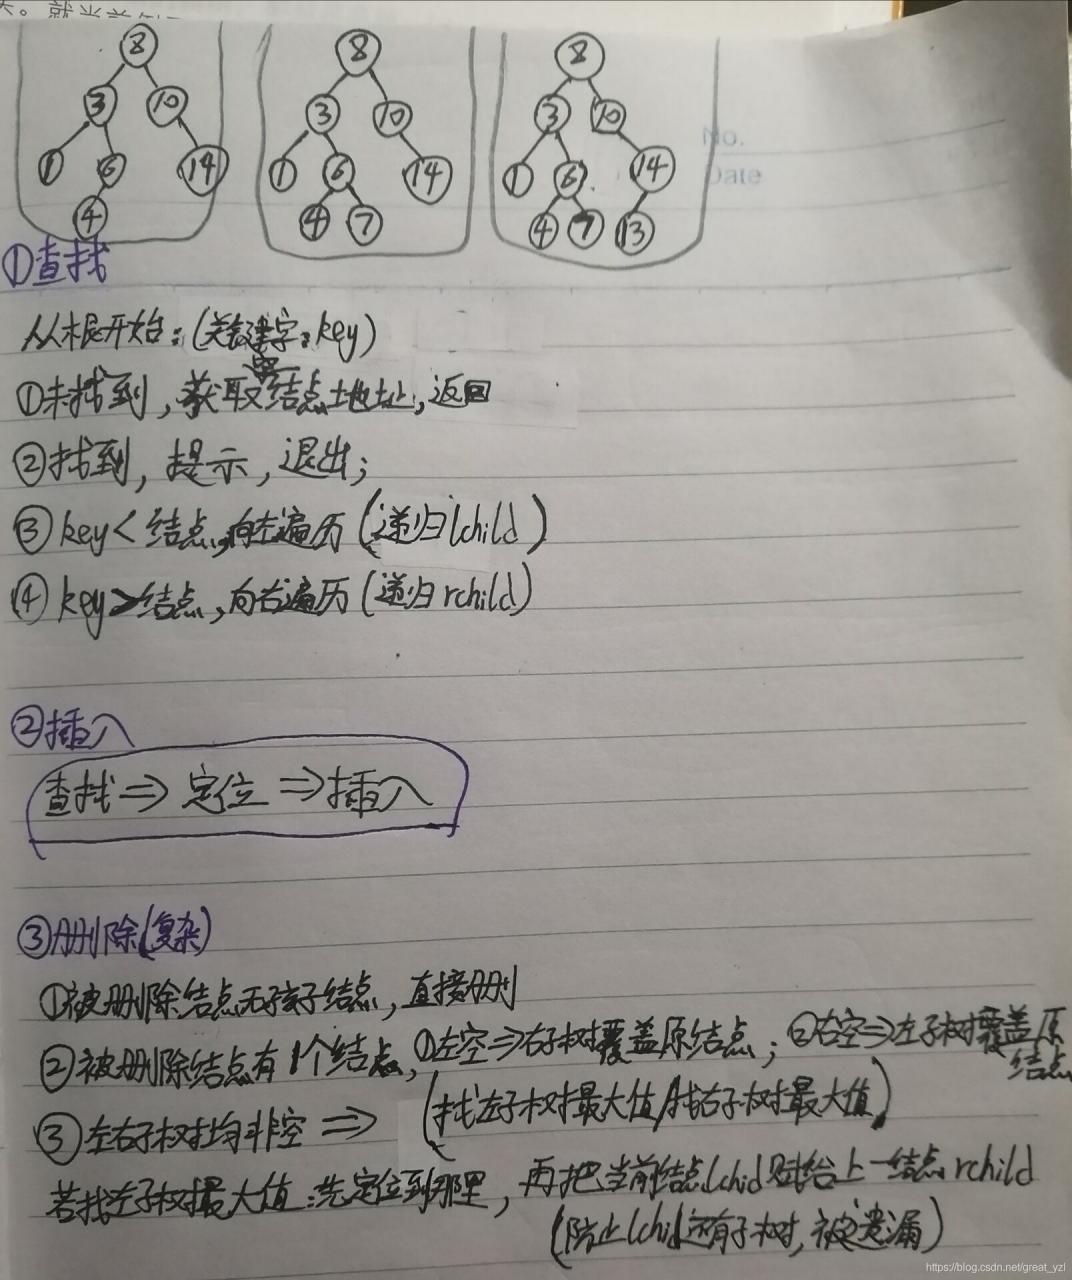 8 8 8
3 10 3 10 3 10
1 6 14 1 6 14 1 6 14
4 4 7 4 7 13
No.
Date
①查找
从根开始:(关键字:key)
①未找到,获取结点地址,返回
②找到,提示,退出;
③key<结点,向左遍历(递归lchild)
④key>结点,向右遍历(递归rchild)
②插入
查找⇒定位⇒插入
③删除(复杂)
①被删除结点无孩子结点,直接删
②被删除结点有1个结点,①左空⇒右子树覆盖原结点;②右空⇒左子树覆盖原结点
③左右子树均非空⇒(找左子树最大值/找右子树最大值)
若找左子树最大值:先定位到那里,再把当前结点lchid赋给上一结点rchild
(防止lchid还有子树,被遗漏)
https://blog.csdn.net/great_yzl